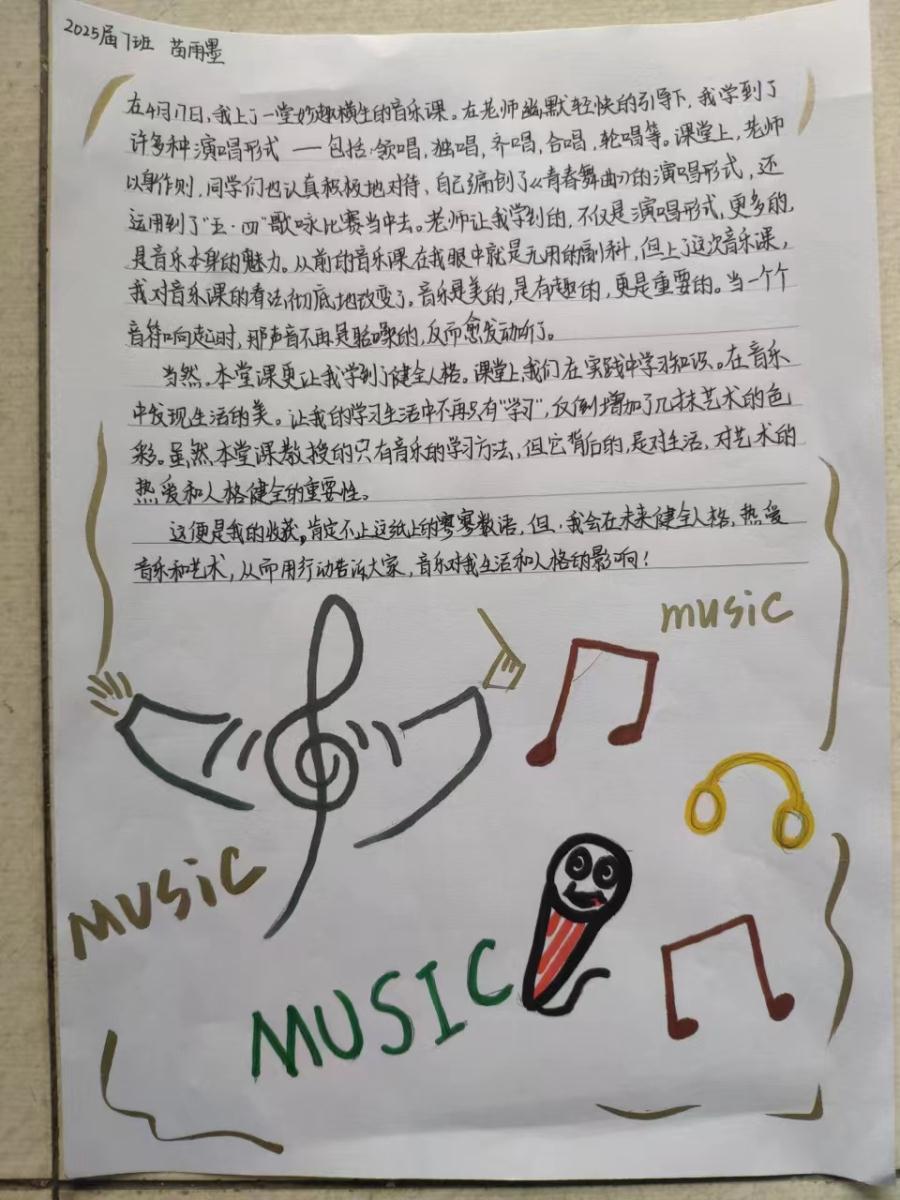 2025届7班 苗雨墨
在4月17日,我上了一堂妙趣横生的音乐课。在老师幽默轻快的引导下,我学到了
许多种演唱形式 —— 包括:领唱,独唱,齐唱,合唱,轮唱等。课堂上,老师
以身作则,同学们也认真积极地对待,自己编创了《青春舞曲》的演唱形式,还
运用到了“五·四”歌咏比赛当中去。老师让我学到的,不仅是演唱形式,更多的,
是音乐本身的魅力。从前的音乐课在我眼中就是无用的副科,但上了这次音乐课,
我对音乐课的看法彻底地改变了,音乐是美的,是有趣的,更是重要的。当一个个
音符响起时,那声音不再是聒噪的,反而愈发动听了。
当然,本堂课更让我学到了健全人格。课堂上,我们在实践中学习知识。在音乐
中发现生活的美。让我的学习生活中不再只有“学习”,反倒增加了几抹艺术的色
彩。虽然本堂课教授的只有音乐的学习方法,但它背后的,是对生活,对艺术的
热爱和人格健全的重要性。
这便是我的收获,肯定不止这纸上的寥寥数语,但,我会在未来健全人格,热爱
音乐和艺术,从而用行动告诉大家,音乐对我生活和人格的影响!
music
MUSiC
MUSIC